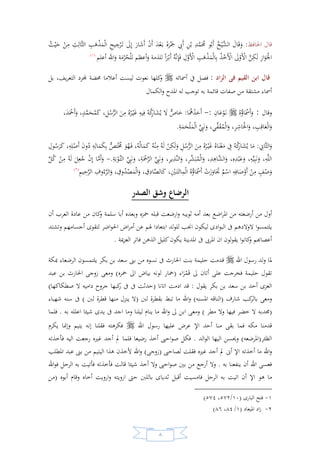 قال الحافظ: وَقَالَ الشَّيْخُ أَبُو مُحَمَّدِ بْنِ أَبِي جَمْرَةَ بَعْدَ أَنْ أَشَارَ إِلَى تَرْجِيحِ الْمَذْهَبِ الثَّالِثِ مِنْ حَيْثُ
الْجَوَازُ لَكِنِ الْأَوْلَى الْأَخْذُ بِالْمَذْهَبِ الْأَوَّلِ فَإِنَّهُ أَبْرَأُ لِلذِّمَّةِ وَأَعْظَمُ لِلْحُرْمَةِ وَاللهُ أعلم(١)
قال ابن القيم فى الزاد : فصل في أسمائه ﷺ وكلها نعوت ليست أعلاما محضة لمجرد التعريف، بل
أسماء مشتقة من صفات قائمة به توجب له المدح والكمال
وقال : وَأَسْمَاؤُهُ ﷺ نَوْعَانِ:- أَحَدُهُمَا: خَاصٌّ لَا يُشَارِكُهُ فِيهِ غَيْرُهُ مِنَ الرُّسُلِ، كَمُحَمَّدٍ، وَأَحْمَدَ،
وَالْعَاقِبِ، وَالْحَاشِرِ، وَالْمُقَفِّي، وَنَبِيِّ الْمَلْحَمَةِ.
وَالثَّانِي: مَا يُشَارِكُهُ فِي مَعْنَاهُ غَيْرُهُ مِنَ الرُّسُلِ، وَلَكِنْ لَهُ مِنْهُ كَمَالُهُ، فَهُوَ مُخْتَصٌّ بِكَمَالِهِ دُونَ أَصْلِهِ، كَرَسُولِ
اللَّهِ، وَنَبِيِّهِ، وَعَبْدِهِ، وَالشَّاهِدِ، وَالْمُبَشِّرِ، وَالنَّذِيرِ، وَنَبِيِّ الرَّحْمَةِ، وَنَبِيِّ التَّوْبَةِ. - وَأَمَّا إِنْ جُعِلَ لَهُ مِنْ كُلِّ
وَصْفٍ مِنْ أَوْصَافِهِ اسْمٌ تَجَاوَزَتْ أَسْمَاؤُهُ الْمِائَتَيْنِ، كَالصَّادِقِ، وَالْمَصْدُوقِ، وَالرَّءُوفِ الرَّحِيمِ(٢)
الرضاع وشق الصدر
أول من أرضعته من المراضع بعد أمه ثويبه وارضعت قبله حمزه وبعده أبا سلمة وكان من عادة العرب أن
يلتمسوا لأولادهم فى البوادى ليكون انجب للولد ابتعادا لهم عن أمراض الحواضر لتقوى أجسامهم وتشتد
أعصابهم وكانوا يقولون ان المربى فى المدينة يكون كليل الذهن فاتر العزيمة .
لما ولد رسول الله ﷺ قدمت حليمة بنت الحارث فى نسوه من بنى سعد بن بكر يلتمسون الرضعاء بمكة
تقول حليمة فخرجت على أتان لى قمراء (حمار لونه بياض الى حمره) ومعى زوجى الحارث بن عبد
العزى أحد بن سعد بن بكر يقول : قد ادمت اتانا (حدثت فى ف ركبها جروح داميه لا صطكاكها)
ومعى بالركب شارف (الناقة المسنه) والله ما تبط بقطرة لبن (لا ينزل منها قطرة لبن ) فى سنه شهباء
(مجدبه لا خضر فيها ولا مطر ) ومعى ابن لى والله ما ينام ليلنا وما اجد فى يدى شيئا اعلله به . فلما
قدمنا مكه فما بقى منا أحد الا عرض عليها رسول الله ﷺ فكرهته فقلنا إنه يتيم وإنما يكرم
الظئر(المرضعه) ويحسن اليها الوالد . فكل صواحبى أخذ رضيعا فلما لم أجد غيره رجعت اليه فأخذته
والله ما أخذته الا أنى لم أجد غيره فقلت لصاحبى (زوجى) والله لآخذن هذا اليتيم من بنى عبد المطلب
فعسى الله أن ينفعنا به . ولا أرجع من بين صواحبى ولا أخذ شيئا قالت فأخذته فأتيت به الرحل فوالله
ما هو الا أن اتيت به الرحل فامسيت أقبل ثدياى باللبن حتى ارويته وارويت أخاه وقام أبوه (من
١- فتح البارى (١٠/ ٥٧٣، ٥٧٤)
٢- زاد المعاد (١/ ٨٤، ٨٦)
٨